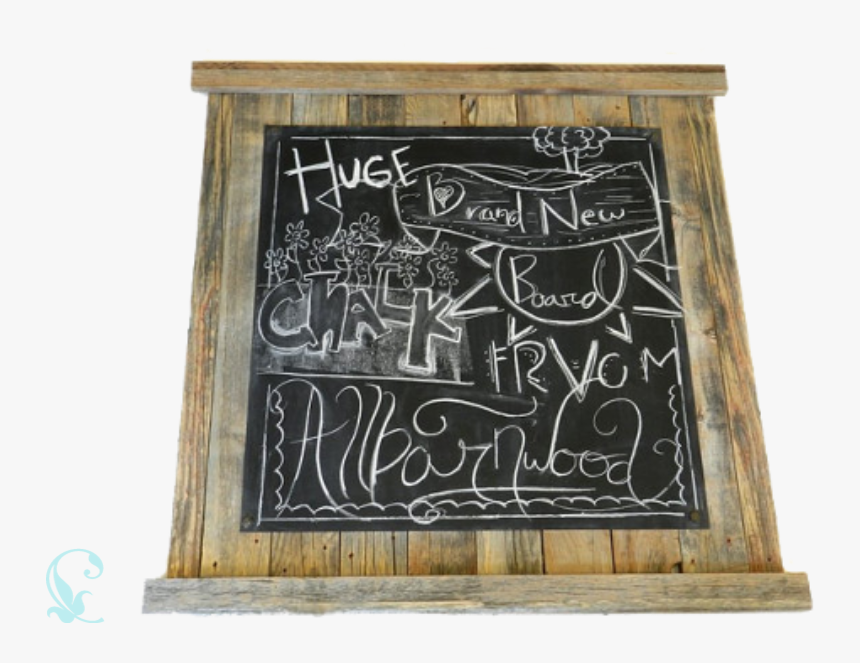 HUGE
Brand New
Board
CHALK
FROM
Allbarnwood